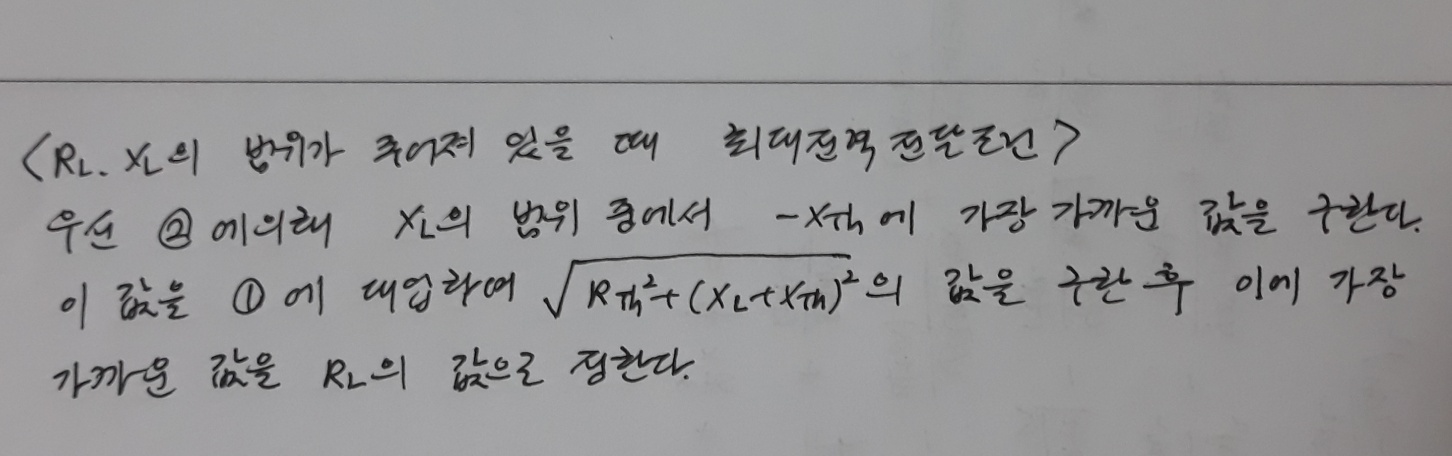 <RL. XL의 범위가 주어져 있을 때 최대전력 전달조건>
우선 ②에의해 XL의 범위 중에서 -Xth에 가장 가까운 값을 구한다.
이 값을 ①에 대입하여 √(Rth²+(XL+Xth)²)의 값을 구한 후 이에 가장
가까운 값을 RL의 값으로 정한다.